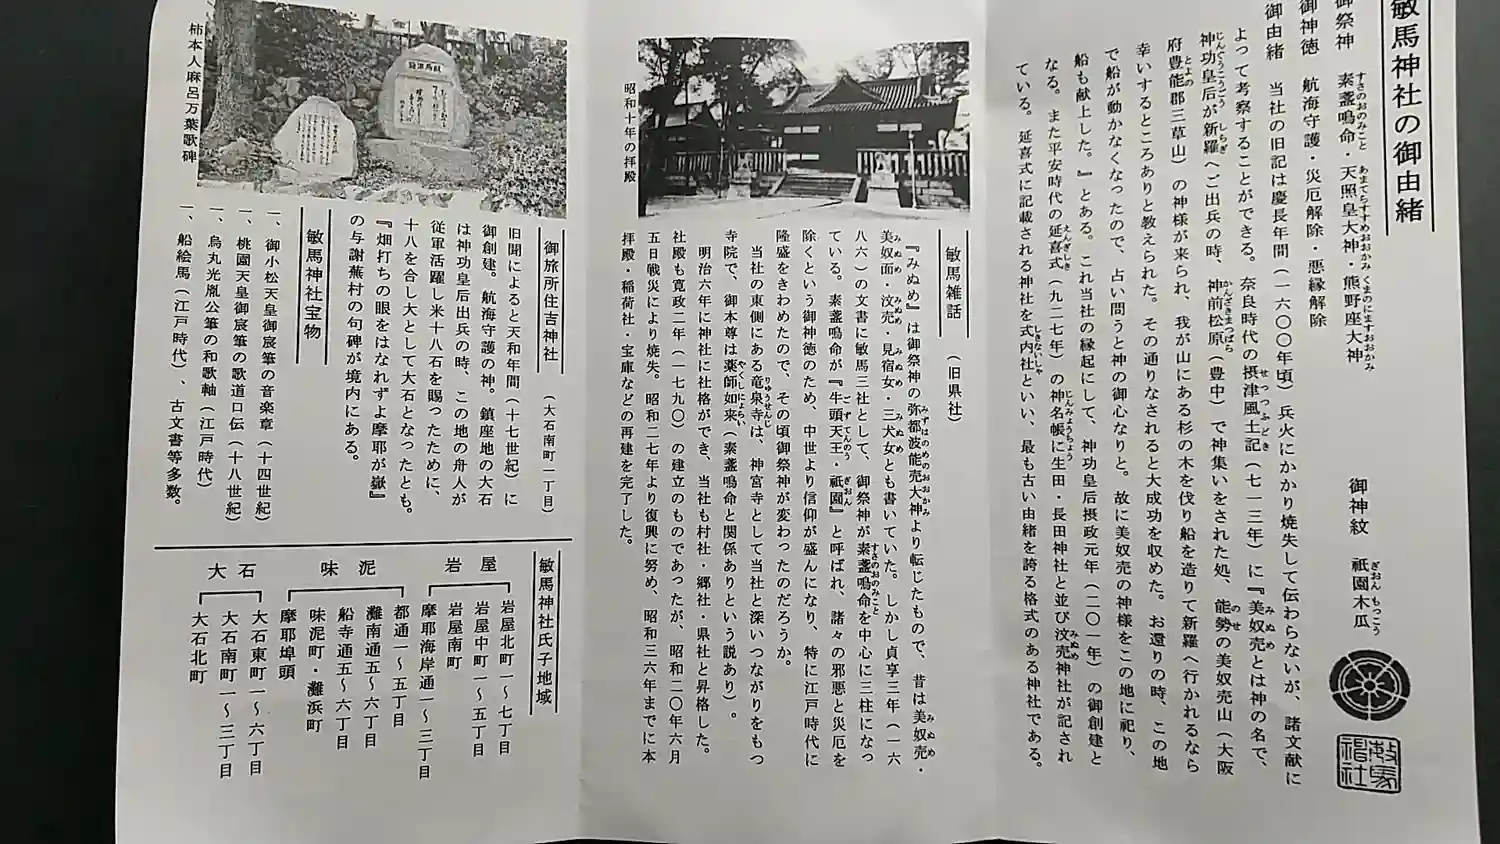 敏馬神社の御由緒
御祭神　素盞鳴命・天照皇大神・熊野座大神
すさのおのみこと　あまてらすすめおおかみ　くまのにますおおかみ
御神徳　航海守護・災厄解除・悪縁解除
御神紋　祇園木瓜
ぎおんもっこう
敏馬神社
御由緒　当社の旧記は慶長年間（一六〇〇年頃）兵火にかかり焼失して伝わらないが、諸文献に
よって考察することができる。奈良時代の摂津風土記（七一三年）に『美奴売とは神の名で、
神功皇后が新羅へご出兵の時、神前松原（豊中）で神集いをされた処、能勢の美奴売山（大阪
府豊能郡三草山）の神様が来られ、我が山にある杉の木を伐り船を造りて新羅へ行かれるなら
幸いするところありと教えられた。その通りなされると大成功を収めた。お還りの時、この地
で船が動かなくなったので、占い問うと神の御心なりと。故に美奴売の神様をこの地に祀り、
船も献上した。』とある。これ当社の縁起にして、神功皇后摂政元年（二〇一年）の御創建と
なる。また平安時代の延喜式（九二七年）の神名帳に生田・長田神社と並び汶売神社が記され
ている。延喜式に記載される神社を式内社といい、最も古い由緒を誇る格式のある神社である。
昭和十年の拝殿
敏馬雑話　（旧県社）
『みぬめ』は御祭神の弥都波能売大神より転じたもので、昔は美奴売・
美奴面・汶売・見宿女・三犬女とも書いていた。しかし貞享三年（一六
八六）の文書に敏馬三社として、御祭神が素盞鳴命を中心に三柱になっ
ている。素盞鳴命が『牛頭天王・祇園』と呼ばれ、諸々の邪悪と災厄を
除くという御神徳のため、中世より信仰が盛んになり、特に江戸時代に
隆盛をきわめたので、その頃御祭神が変わったのだろうか。
当社の東側にある竜泉寺は、神宮寺として当社と深いつながりをもつ
寺院で、御本尊は薬師如来（素盞鳴命と関係ありという説あり）。
明治六年に神社に社格ができ、当社も村社・郷社・県社と昇格した。
社殿も寛政二年（一七九〇）の建立のものであったが、昭和二〇年六月
五日戦災により焼失。昭和二七年より復興に努め、昭和三六年までに本
拝殿・稲荷社・宝庫などの再建を完了した。
柿本人麻呂万葉歌碑
御旅所住吉神社　（大石南町一丁目）
旧聞によると天和年間（十七世紀）に
御創建。航海守護の神。鎮座地の大石
は神功皇后出兵の時、この地の舟人が
従軍活躍し米十八石を賜ったために、
十八を合し大として大石となったとも。
『畑打ちの眼をはなれずよ摩耶が嶽』
の与謝蕪村の句碑が境内にある。
敏馬神社宝物
一、御小松天皇御宸筆の音楽章（十四世紀）
一、桃園天皇御宸筆の歌道口伝（十八世紀）
一、烏丸光胤公筆の和歌軸（江戸時代）
一、船絵馬（江戸時代）、古文書等多数。
敏馬神社氏子地域
岩屋
岩屋北町一～七丁目
岩屋中町一～五丁目
岩屋南町
摩耶海岸通一～三丁目
味泥
都通一～五丁目
灘南通五～六丁目
船寺通五～六丁目
味泥町・灘浜町
摩耶埠頭
大石
大石東町一～六丁目
大石南町一～三丁目
大石北町